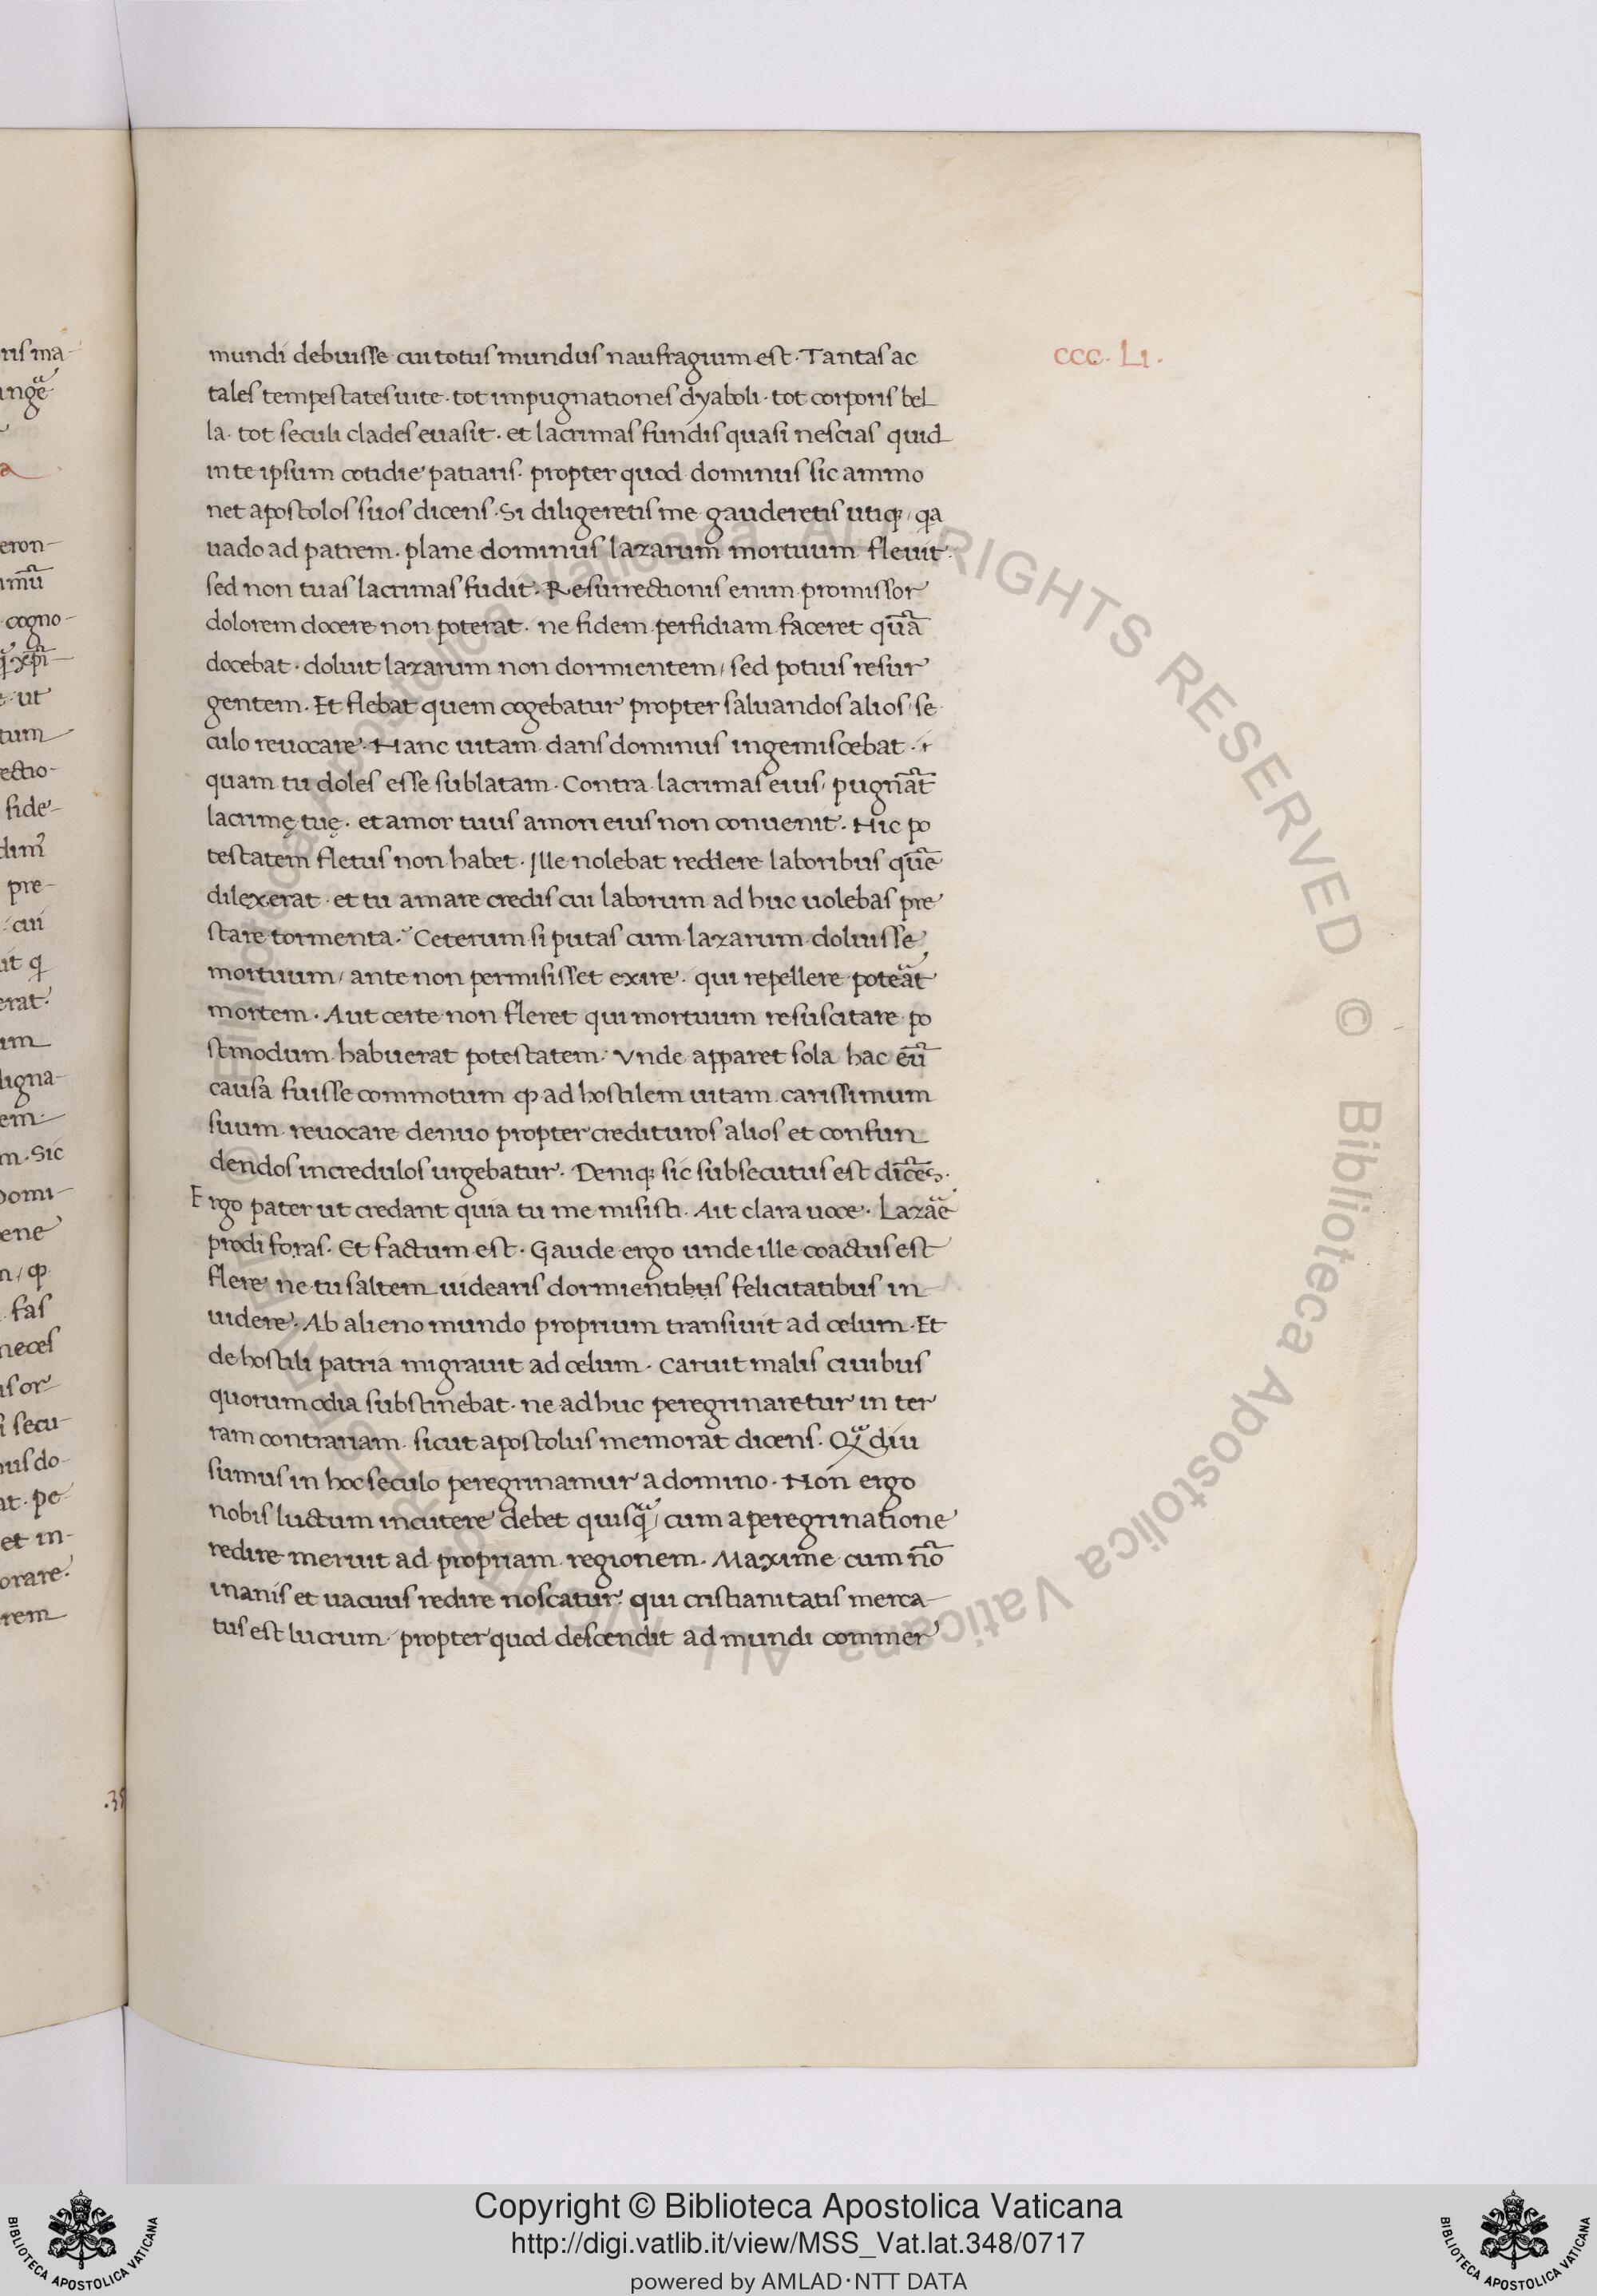 mundi debuisse cui totus mundus naufragium est · Tantas ac
CCC · LI ·
tales tempestates uite · tot impugnationes dyaboli · tot corporis bel
la · tot seculi clades euasit · et lacrimas fundis quasi nescias quid
in te ipsum cotidie patiaris · propter quod dominus sic ammo
net apostolos suos dicens · Si diligeretis me gauderetis utiqꝫ / qa
uado ad patrem · plane dominus lazarum mortuum fleuit ·
sed non tuas lacrimas fudit · Resurrectionis enim promissor
dolorem docere non poterat · ne fidem perfidiam faceret quā
docebat · doluit lazarum non dormientem / sed potuis resur
gentem · Et flebat quem cogebatur propter saluandos alios / se
culo reuocare · Hanc uitam dans dominus ingemiscebat ·
quam tu doles esse sublatam · Contra lacrimas eius / pugnāt
lacrimę tuę · et amor tuus amori eius non conuenit · Hic po
testatem fletus non habet · Ille nolebat reddere laboribus quē
dilexerat · et tu amare credis cui laborum ad huc uolebas pre
stare tormenta · Ceterum si putas cum lazarum doluisse
mortuum / ante non permisisset exire · qui repellere poteat
mortem · Aut certe non fleret qui mortuum resuscitare po
stmodum habuerat potestatem · Vnde apparet sola hac eū
causa fuisse commotum ꝙ ad hostilem uitam carissimum
suum reuocare denuo propter credituros alios et confun
dendos incredulos urgebatur · Deniqꝫ sic subsecutus est dicēs ·
Ergo pater ut credant quia tu me misisti · Ait clara uoce · Lazae
prodi foras · Et factum est · Gaude ergo unde ille coactus est
flere ne tu saltem uidearis dormientibus felicitatibus in
uidere · Ab alieno mundo proprium transiuit ad celum · Et
de hostili patria migrauit ad celum · Caruit malis ciuibus
quorum odia substinebat · ne ad huc peregrinaretur in ter
ram contrariam sicut apostolus memorat dicens · Qᵃ diu
sumus in hoc seculo peregrinamur a domino · Non ergo
nobis luctum incutere debet quisqᵃ / cum a peregrinatione
redire meruit ad propriam regionem · Maxime cum nō
inanis et uacuus redire noscatur · qui cristianitatis merca
tus est lucrum · propter quod descendit ad mundi commer
Copyright © Biblioteca Apostolica Vaticana
http://digi.vatlib.it/view/MSS_Vat.lat.348/0717
powered by AMLAD·NTT DATA
BIBLIOTECA APOSTOLICA VATICANA
BIBLIOTECA APOSTOLICA VATICANA